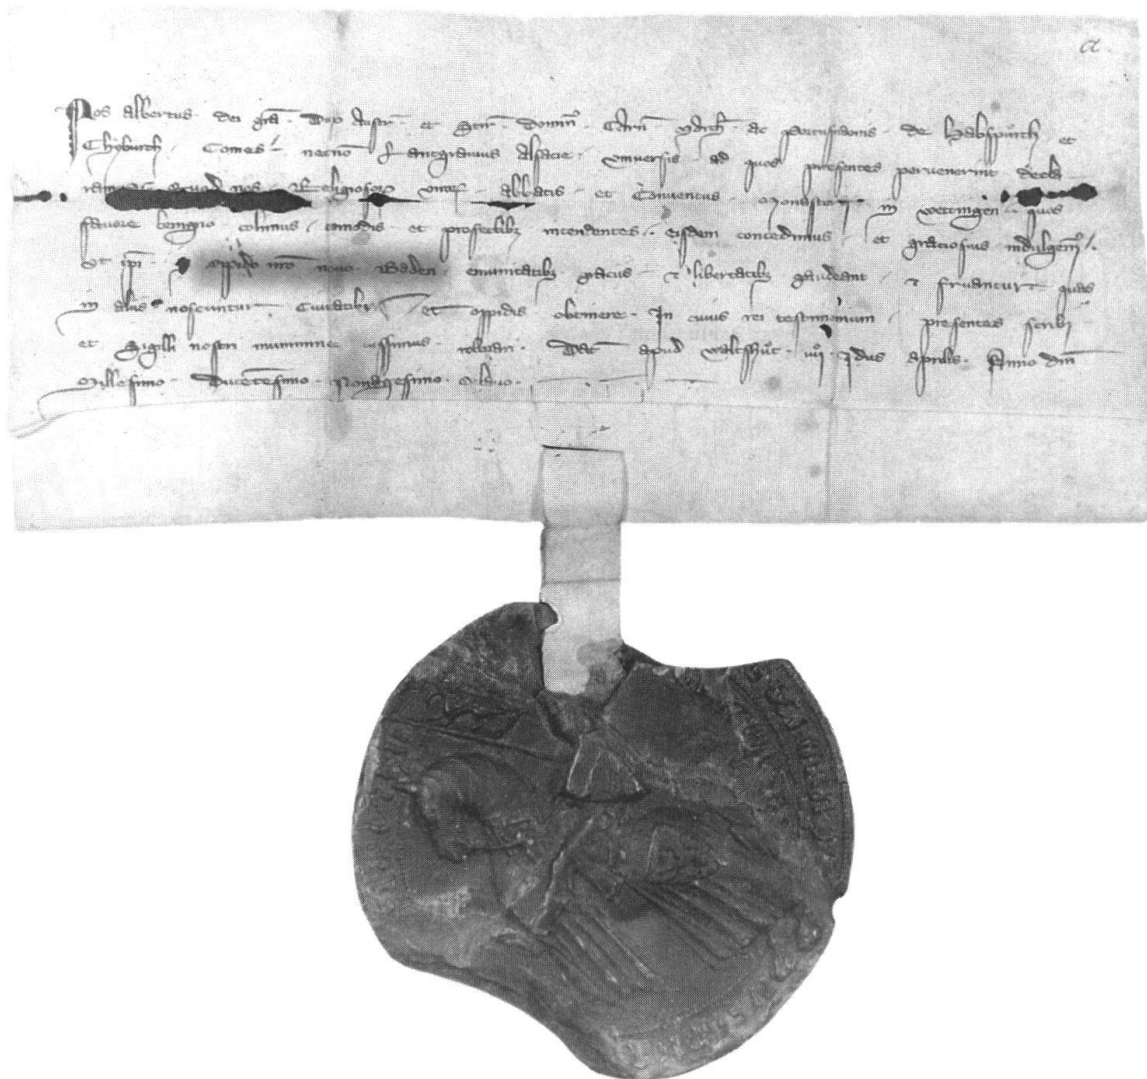 a
Nos Albertus dei gra Dux Austr et Stir Domin Carn March ac Portusnaonis de Habspurch et
Chyburch Comes necno Lantgravius Alsacie Universis ad quos presentes pervenerint decla
nos Religiosor viror Abbatis et Conventus Monasterij in Wettingen quos
favore benigno colimus comodis et profectibz intendentes eisdem concedimus et graciosius indulgem
Ut ipi oppido nro novo Baden emunitatibz graciis et libertatibz gaudeant et fruantur quas
in aliis noscuntur Civitatibz et oppidis obtinere In cuius rei testimonium presentes scribi
et Sigilli nostri munimine iussimus roborari Dat apud Waltshut Idus Aprilis Anno dni
Millesimo Ducetesimo Nonagesimo